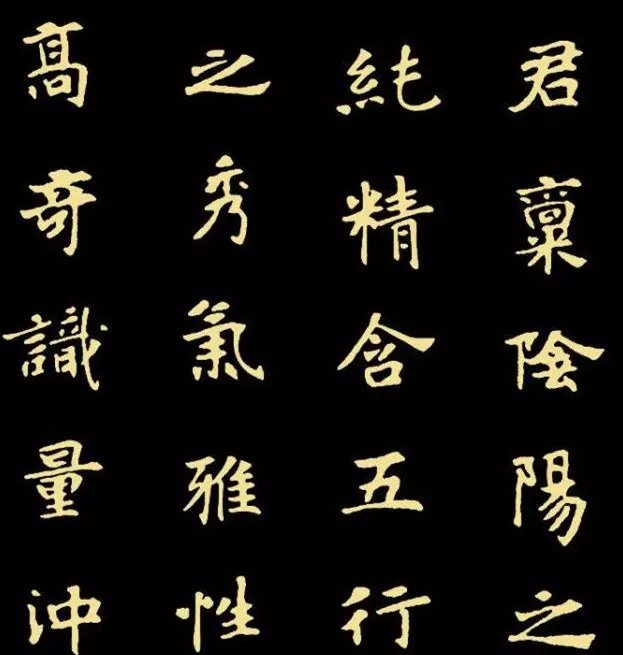 君稟陰陽之
純精含五行
之秀氣雅性
高奇識量沖